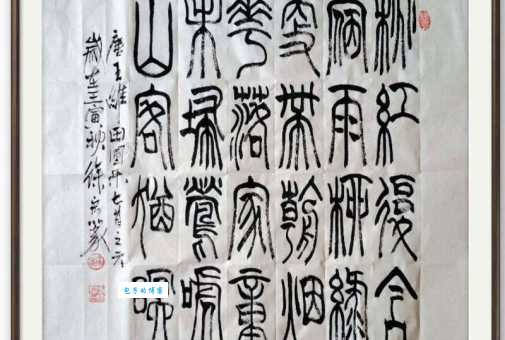 桃紅復含
宿雨柳綠
更帶朝烟
花落家童
未掃鶯啼
山客猶眠
唐王維田園乐七首之六
歲在壬寅秋徐篆
的博客